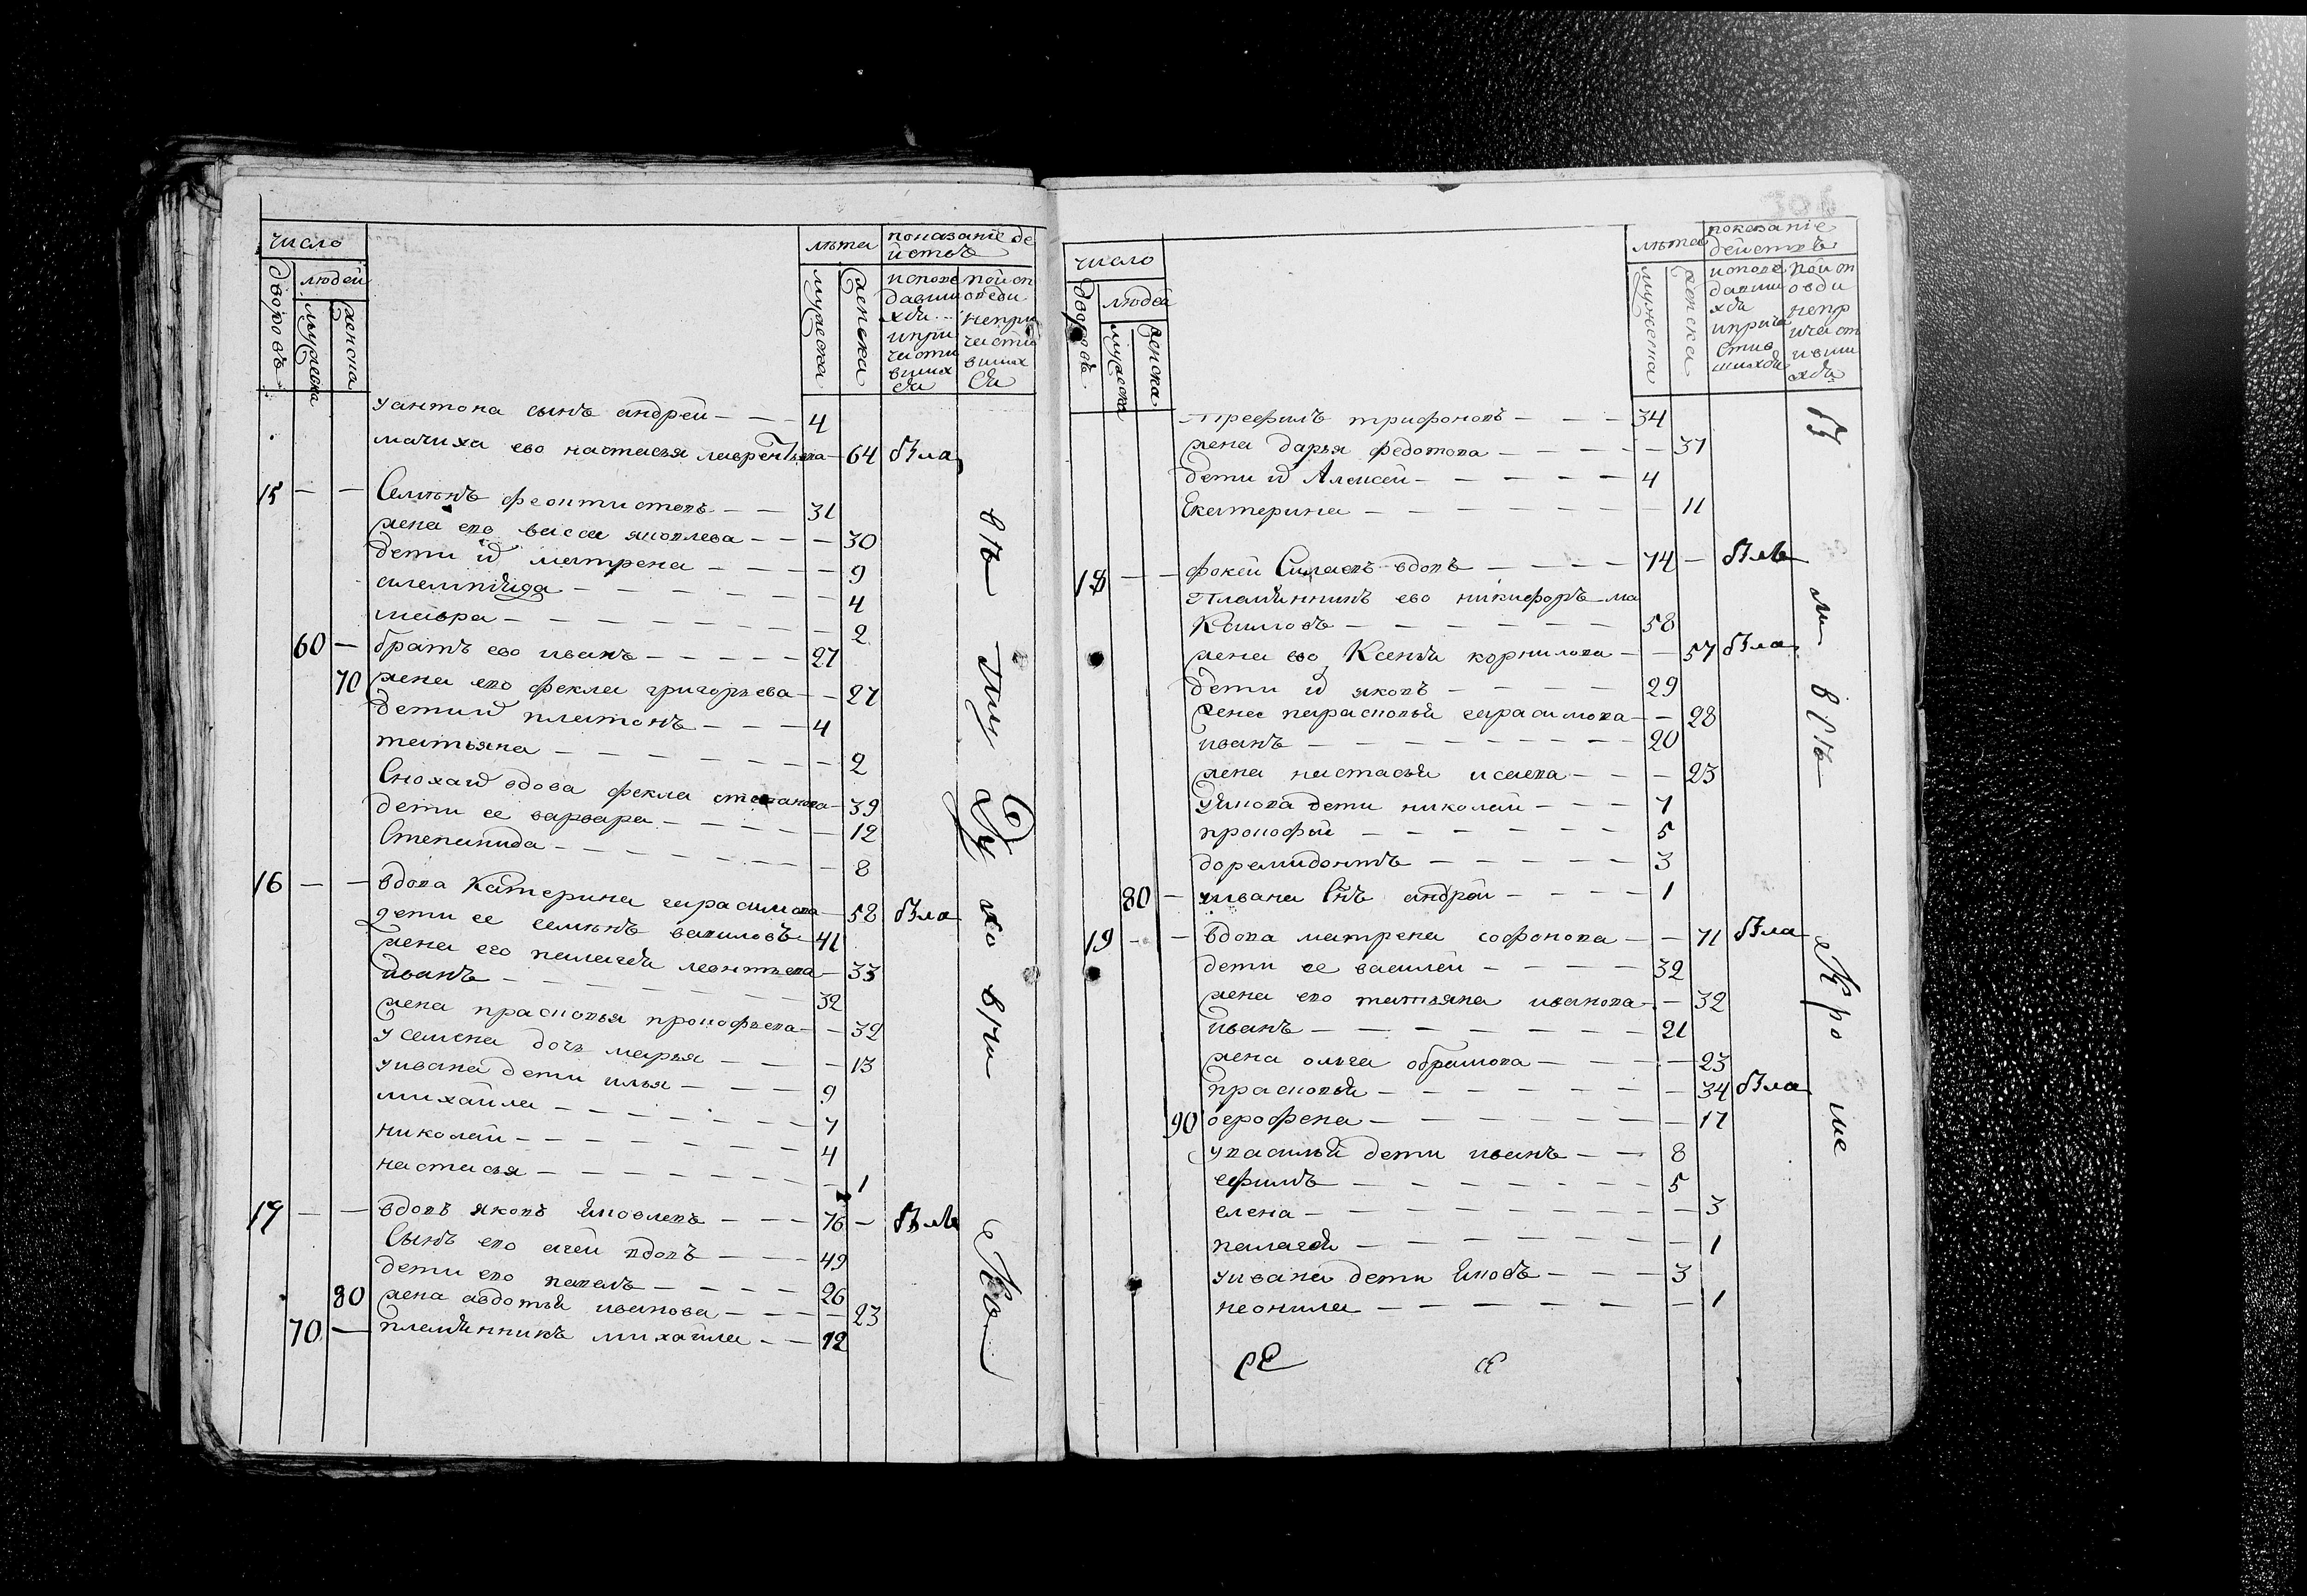 число
дворовъ
людей
мужеска
женска
лѣта
мужеска
женска
показаніе де
йствъ
испове
давши
хся
и при
части
вших
ся
по исп
оведи
непри
части
вших
ся
у антона сынъ андрей — — 4
мачиха ево настасья лаврентьева — 64 была
15 — — Семѣнъ феоктистовъ — — 31
жена его васса яковлева — — — 30
дети их матрена — — — — 9
алемпияда — — — — — — 4
мавра — — — — — — — 2
60 — братъ ево иванъ — — — — — 27
70 жена его фекла григорьева — — 27
дети их платонъ — — — 4
татьяна — — — — — — 2
Сноха их вдова фекла степанова — 39
дети ее варвара — — — — — 12
Степанида — — — — — — — 8
16 — — вдова Катерина герасимова — 58 была
дети ее семѣнъ вавиловъ 41
жена его пелагея леонтьева — 33
иванъ — — — — — — — 32
жена прасковья прокофьева — — 32
у семена дочь марья — — — 13
у ивана дети илья — — — 9
михайла — — — — — — — 7
николай — — — — — — — 4
настасья — — — — — — — 1
17 — — вдовъ яковъ Яковлевъ — — — 76 — былъ
Сынъ его агей вдовъ — — — 49
дети его павелъ — — — — 26
80 жена авдотья иванова — — — — 23
70 — племянникъ михайла — — 12
число
дворовъ
людей
мужеска
женска
лѣта
мужеска
женска
показание
действъ
испове
давши
хся
и прича
стив
шихся
по исп
овди
непр
ичаст
ивши
хся
трифоновъ — — — 34
жена дарья федотова — — — — — 37
дети их Алексей — — — — — — 4
Екатерина — — — — — — — — 11
18 — — фокей Силаевъ вдовъ — — — — 74 — былъ
Племянникъ ево никифоръ ма
каимовъ — — — — — — 58
жена ево Ксенья корнилова — — 57 была
дети их яковъ — — — — 29
жена парасковья герасимова — — 28
иванъ — — — — — — — — 20
жена настасья исаева — — — 23
у якова дети николай — — — 7
прокофьи — — — — — — — 5
доремидонтъ — — — — — 3
80 — у ивана Снъ андрей — — — — 1
19 — — вдова матрена софонова — — 71 была
дети ее василей — — — — 32
жена его татьяна иванова — — 32
Иванъ — — — — — — — — 21
жена ольга обрамова — — — — 23
прасковья — — — — — — — 34 была
90 — — — — — — — 17
у василья дети иванъ — — 8
ефимъ — — — — — — — 5
елена — — — — — — — — 3
пелагея — — — — — — — 1
у ивана дети Яковъ — — — 3
неонила — — — — — — — 1